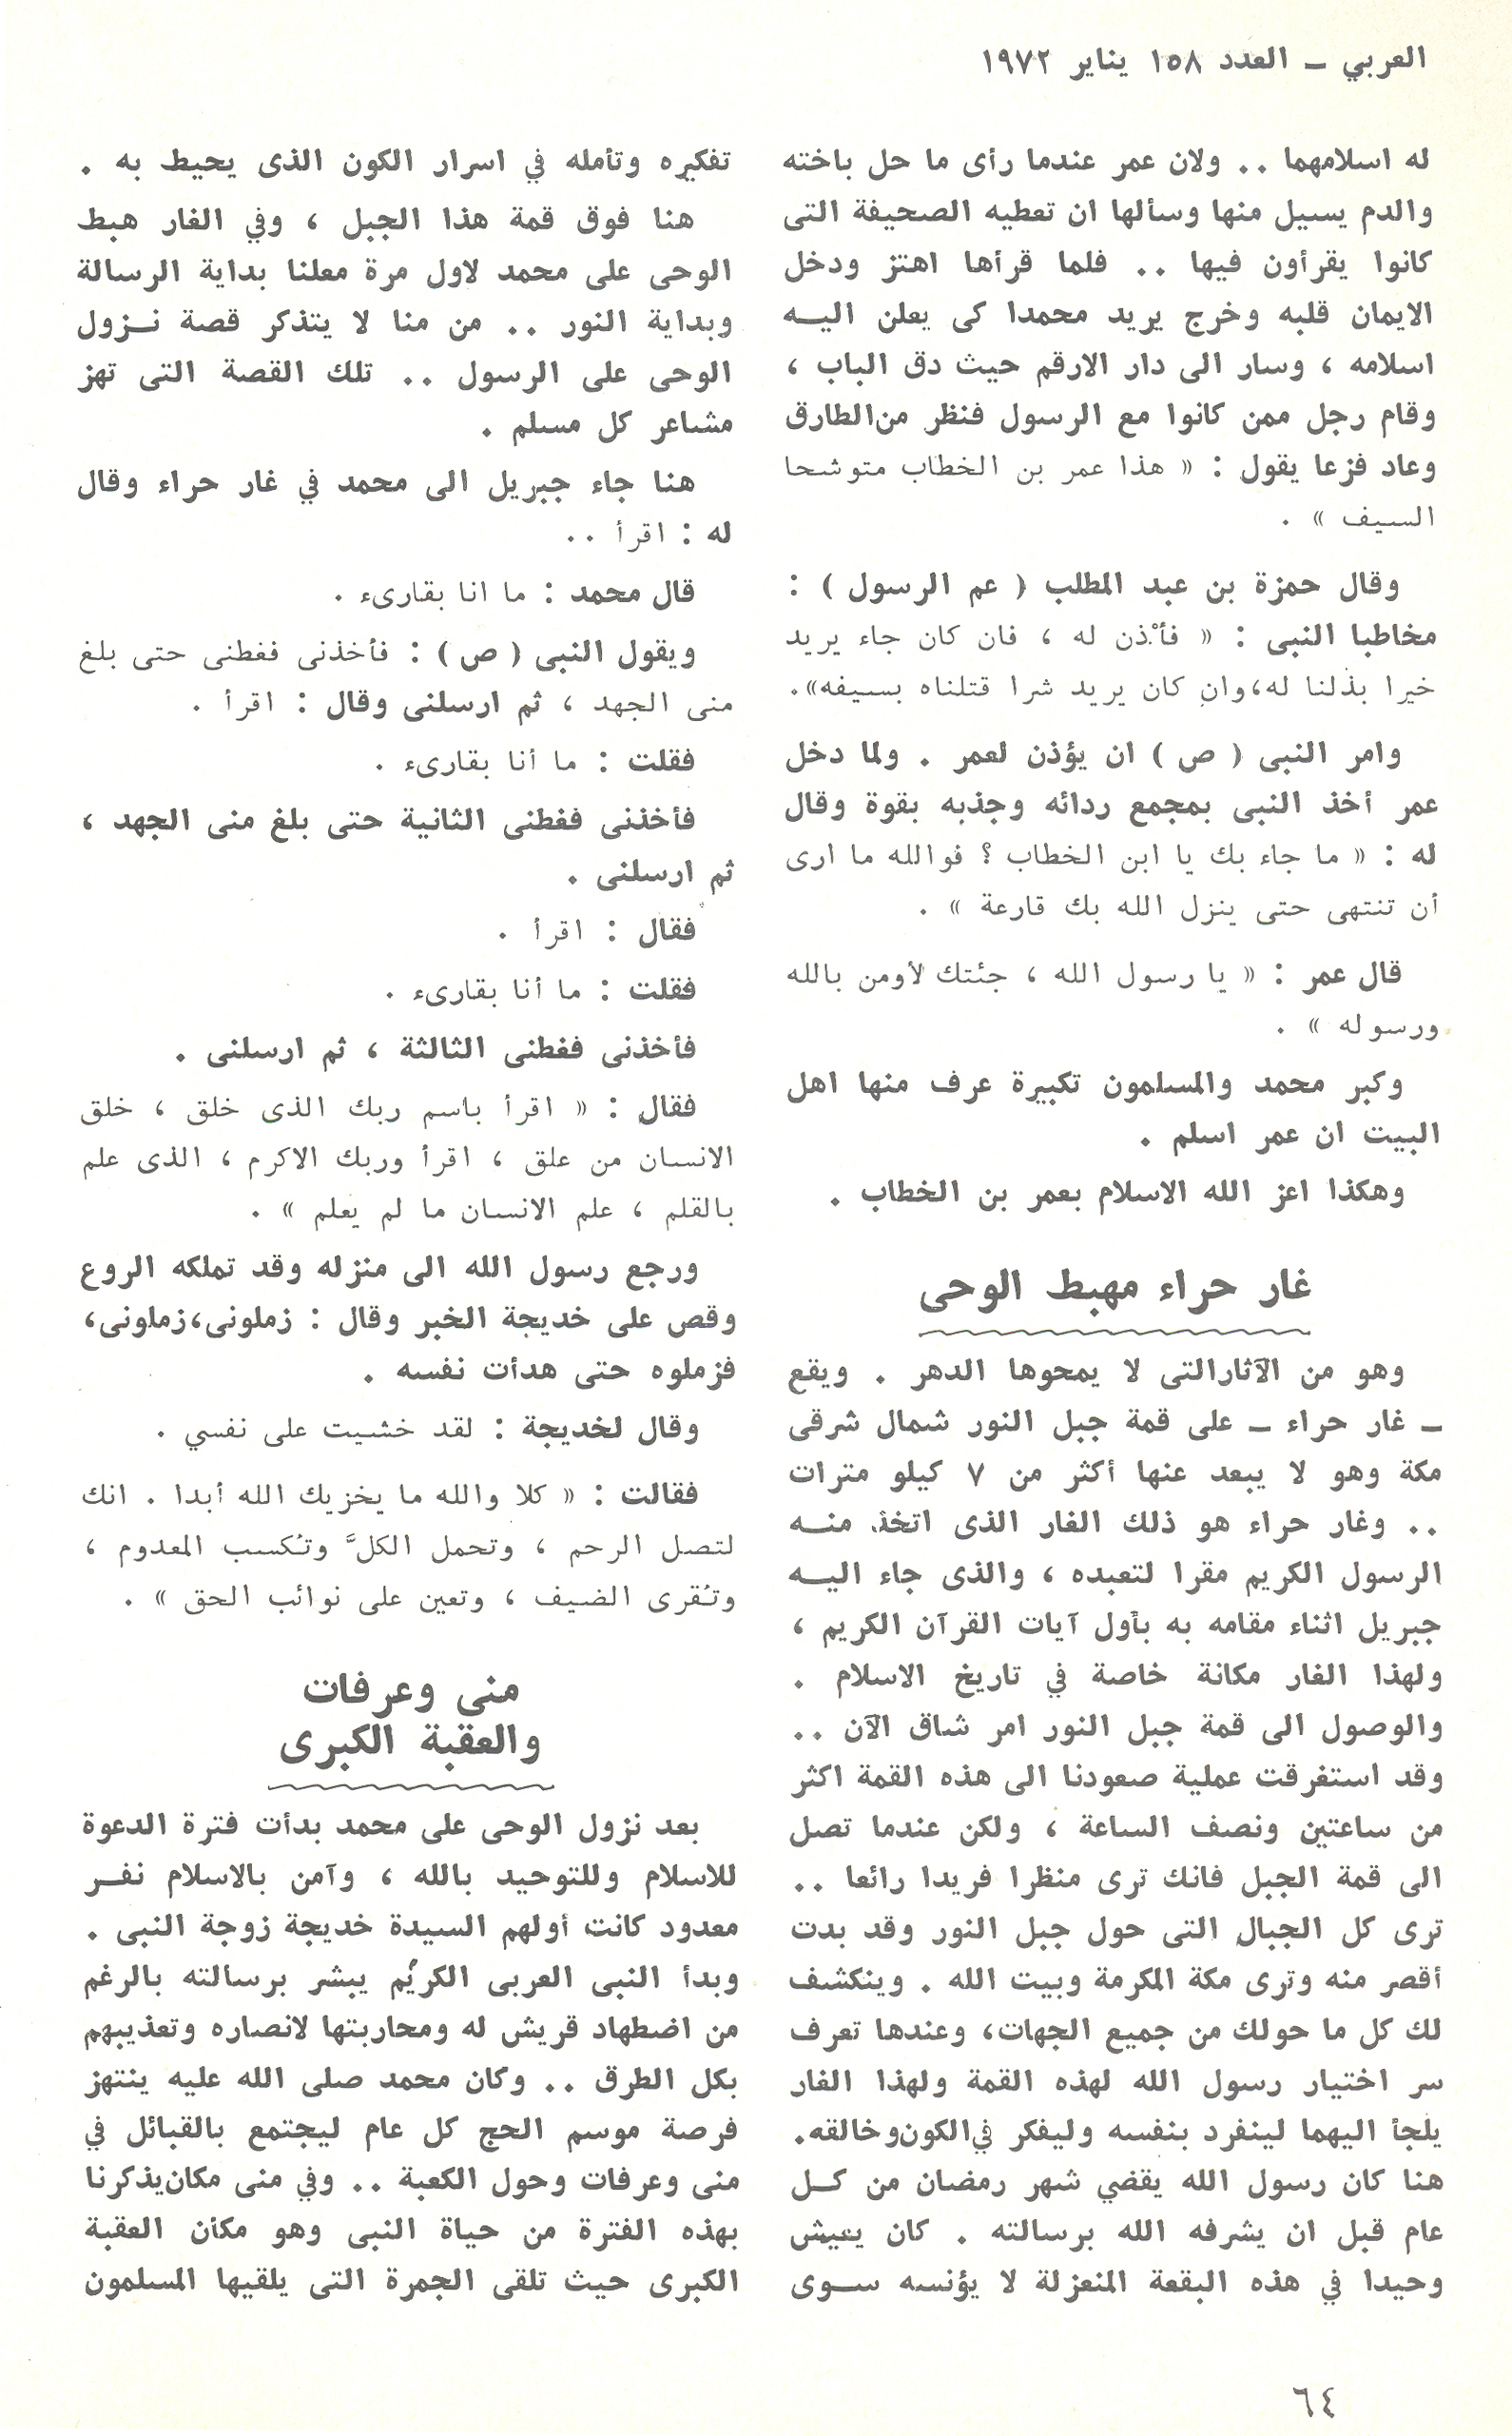 العربي ـ العدد ١٥٨ يناير ١٩٧٢
له اسلامهما .. ولان عمر عندما رأى ما حل باخته
والدم يسيل منها وسألها ان تعطيه الصحيفة التى
كانوا يقرأون فيها .. فلما قرأها اهتز ودخل
الايمان قلبه وخرج يريد محمدا كى يعلن اليـه
اسلامه ، وسار الى دار الارقم حيث دق الباب ،
وقام رجل ممن كانوا مع الرسول فنظر من الطارق
وعاد فزعا يقول : « هذا عمر بن الخطاب متوشحا
السيف » .
وقال حمزة بن عبد المطلب ( عم الرسول ) :
مخاطبا النبى : « فأْذن له ، فان كان جاء يريد
خيرا بذلنا له، وان كان يريد شرا قتلناه بسيفه» .
وامر النبى ( ص ) ان يؤذن لعمر . ولما دخل
عمر أخذ النبى بمجمع ردائه وجذبه بقوة وقال
له : « ما جاء بك يا ابن الخطاب ؟ فوالله ما ارى
أن تنتهى حتى ينزل الله بك قارعة » .
قال عمر : « يا رسول الله ، جئتك لأومن بالله
ورسوله » .
وكبر محمد والمسلمون تكبيرة عرف منها اهل
البيت ان عمر اسلم .
وهكذا اعز الله الاسلام بعمر بن الخطاب .
غار حراء مهبط الوحى
وهو من الآثار التى لا يمحوها الدهر . ويقع
ـ غار حراء ـ على قمة جبل النور شمال شرقى
مكة وهو لا يبعد عنها أكثر من ٧ كيلو مترات
.. وغار حراء هو ذلك الغار الذى اتخذ منـه
الرسول الكريم مقرا لتعبده ، والذى جاء اليـه
جبريل اثناء مقامه به بأول آيات القرآن الكريم ،
ولهذا الغار مكانة خاصة في تاريخ الاسلام .
والوصول الى قمة جبل النور امر شاق الآن ..
وقد استغرقت عملية صعودنا الى هذه القمة اكثر
من ساعتين ونصف الساعة ، ولكن عندما تصل
الى قمة الجبل فانك ترى منظرا فريدا رائعا ..
ترى كل الجبال التى حول جبل النور وقد بدت
أقصر منه وترى مكة المكرمة وبيت الله . وينكشف
لك كل ما حولك من جميع الجهات، وعندها تعرف
سر اختيار رسول الله لهذه القمة ولهذا الغار
يلجأ اليهما لينفرد بنفسه وليفكر في الكون وخالقه.
هنا كان رسول الله يقضي شهر رمضان من كـل
عام قبل ان يشرفه الله برسالته . كان يعيش
وحيدا في هذه البقعة المنعزلة لا يؤنسه سـوى
تفكيره وتأمله في اسرار الكون الذى يحيط به .
هنا فوق قمة هذا الجبل ، وفي الغار هبط
الوحى على محمد لاول مرة معلنا بداية الرسالة
وبداية النور .. من منا لا يتذكر قصة نـزول
الوحى على الرسول .. تلك القصة التى تهز
مشاعر كل مسلم .
هنا جاء جبريل الى محمد في غار حراء وقال
له : اقرأ ..
قال محمد : ما انا بقارىء .
ويقول النبى ( ص ) : فأخذنى فغطنى حتى بلغ
منى الجهد ، ثم ارسلنى وقال : اقرأ .
فقلت : ما أنا بقارىء .
فأخذنى فغطنى الثانية حتى بلغ منى الجهد ،
ثم ارسلنى .
فقال : اقرأ .
فقلت : ما أنا بقارىء .
فأخذنى فغطنى الثالثة ، ثم ارسلنى .
فقال : « اقرأ باسم ربك الذى خلق ، خلق
الانسان من علق ، اقرأ وربك الاكرم ، الذى علم
بالقلم ، علم الانسان ما لم يعلم » .
ورجع رسول الله الى منزله وقد تملكه الروع
وقص على خديجة الخبر وقال : زملونى، زملونى،
فزملوه حتى هدأت نفسه .
وقال لخديجة : لقد خشيت على نفسي .
فقالت : « كلا والله ما يخزيك الله أبدا . انك
لتصل الرحم ، وتحمل الكلَّ وتُكسب المعدوم ،
وتُقرى الضيف ، وتعين على نوائب الحق » .
منى وعرفات
والعقبة الكبرى
بعد نزول الوحى على محمد بدأت فترة الدعوة
للاسلام وللتوحيد بالله ، وآمن بالاسلام نفـر
معدود كانت أولهم السيدة خديجة زوجة النبى .
وبدأ النبى العربى الكريم يبشر برسالته بالرغم
من اضطهاد قريش له ومحاربتها لانصاره وتعذيبهم
بكل الطرق .. وكان محمد صلى الله عليه ينتهز
فرصة موسم الحج كل عام ليجتمع بالقبائل في
منى وعرفات وحول الكعبة .. وفي منى مكان يذكرنا
بهذه الفترة من حياة النبى وهو مكان العقبة
الكبرى حيث تلقى الجمرة التى يلقيها المسلمون
٦٤